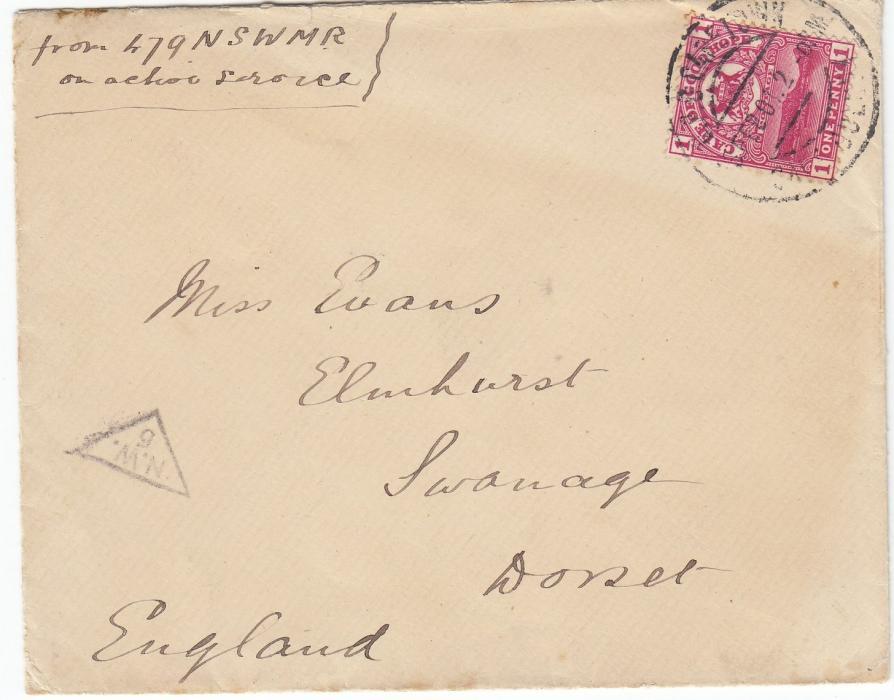 from 479 NSWMR
on active service
CAPE OF GOOD HOPE
1 ONE PENNY 1
1 1
Miss Evans
Elmhurst
Swanage
Dorset
England
N.W.
5